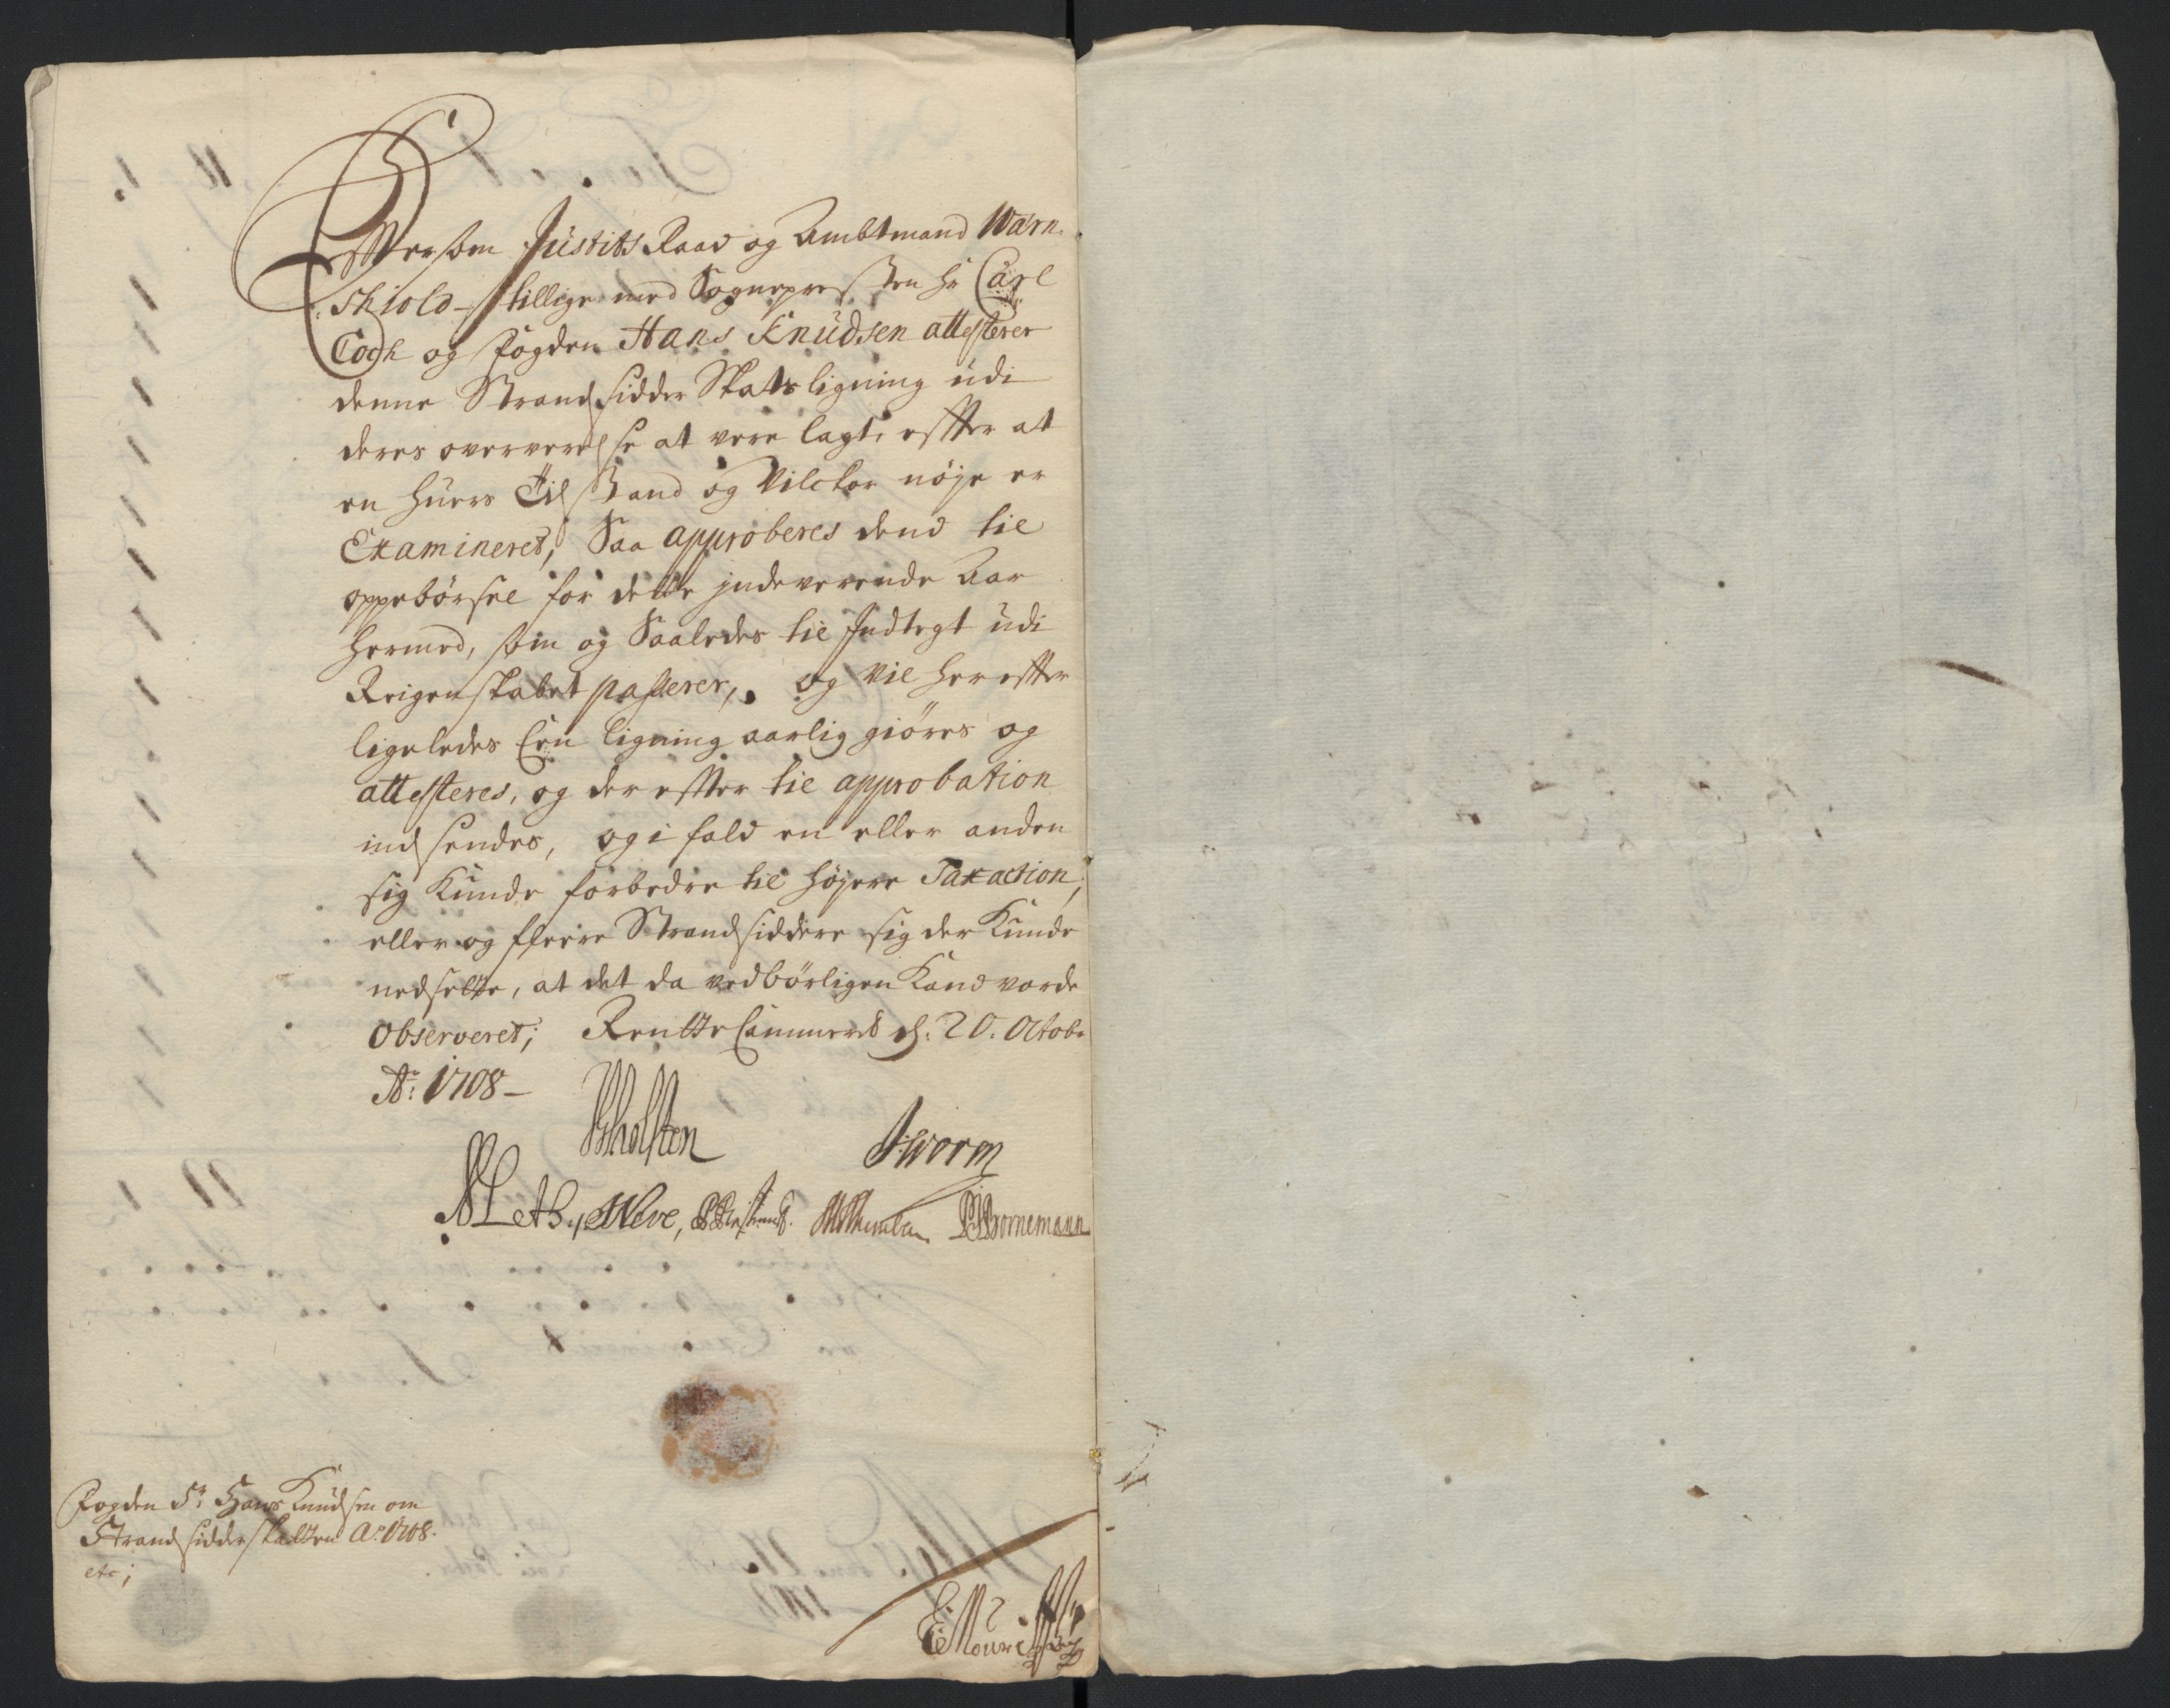 Efftersom Justits Raad og Ambtmand Warn-
shiold tillige med Sognepresten hr Carl
Coch og fogden Hans Knudsen attesterer
denne Strandsidder Skatsligning udi
deres oververelse at vere lagt, effter at
en huers Tilstand og Vilckor nøye er
Examineret, Saa approberes dend til
oppebørsel for dette indeverende Aar
hermed, som og Saaledes til Indtegt udi
Reigenskabet passerer, og vil hereffter
ligeledes Een ligning aarlig giøres og
attesteres, og dereffter til approbation
indsendes, og i fald en eller anden
sig kunde forbedre til høyere Taxation,
eller og fleere Strandsiddere sig der Kunde
nedsette, at det da vedbørligen Kand vorde
Observeret; RentteCammeret d: 20. Octobr
Ao: 1708-
Holsten Jworm
Neve, Bornemann
Fogden Sr. Hans Knudsen om
Strandsidderskatten Ao. 1708.
etc;